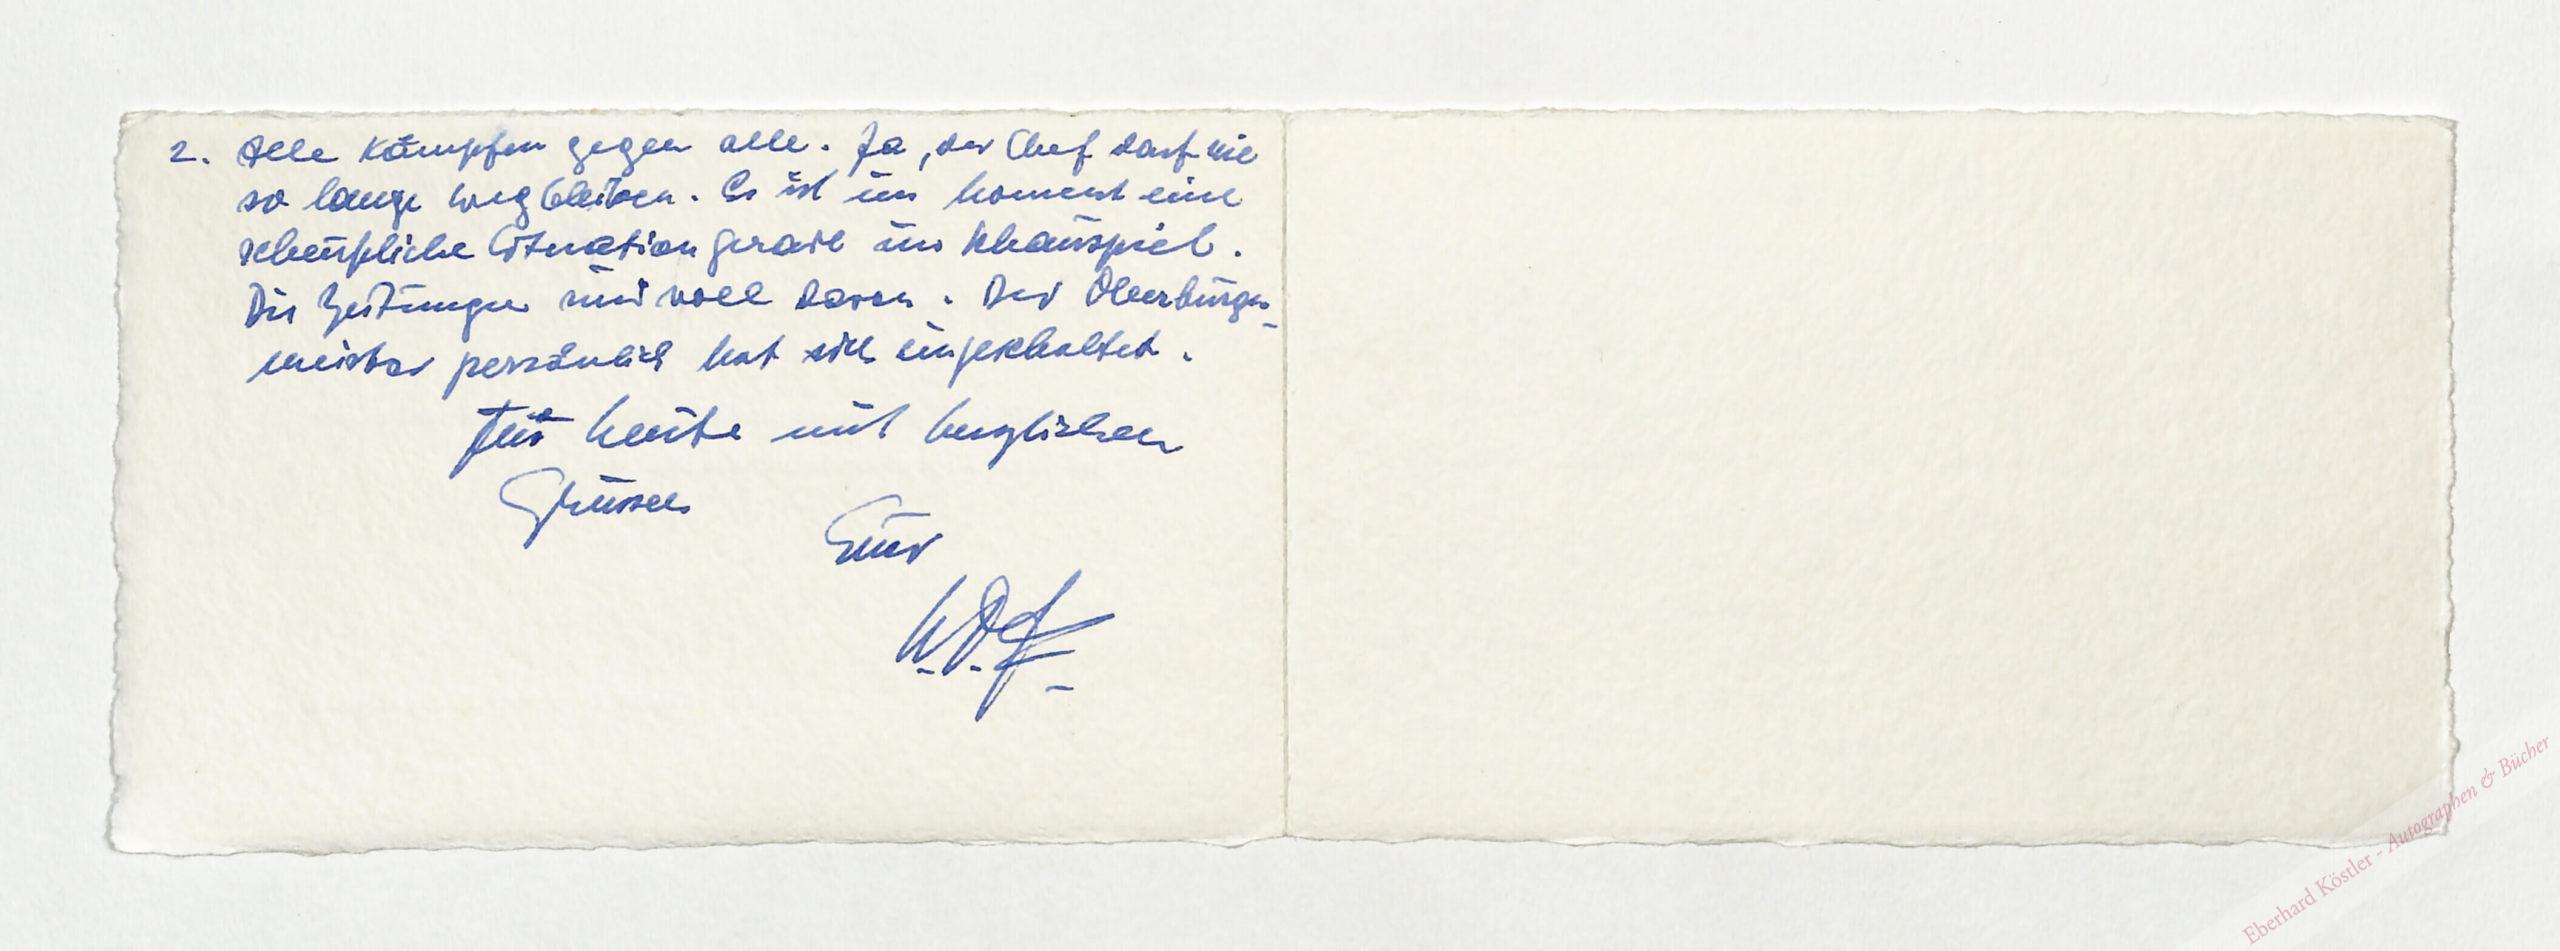 2. Alle kämpfen gegen alle. Ja, der Chef darf nie
so lange wegbleiben. Es ist im Moment eine
scheußliche Situation gerade im Schauspiel.
Die Zeitungen sind voll davon. Der Oberbürger-
meister persönlich hat sich eingeschaltet.
Für heute mit herzlichen
Grüssen
Euer
W.D.
Eberhard Köstler - Autographen & Bücher